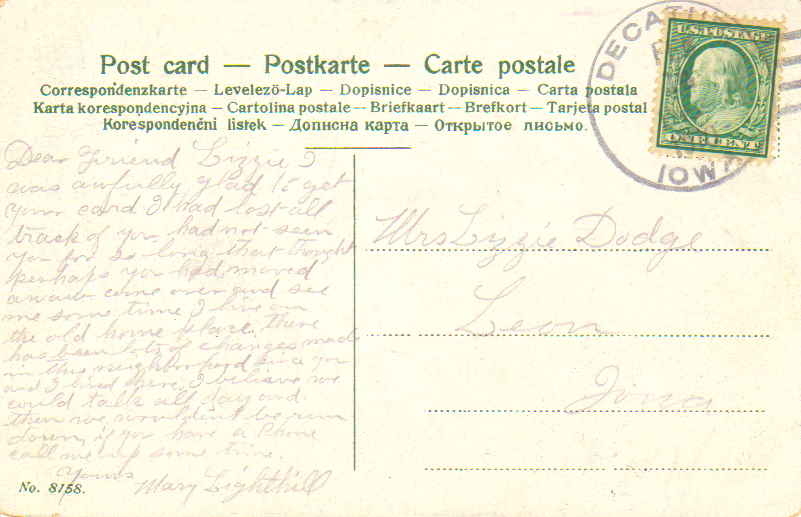 Post card — Postkarte — Carte postale
Correspondenzkarte — Levelező-Lap — Dopisnice — Dopisnica — Carta postala
Karta korespondencyjna — Cartolina postale — Briefkaart — Brefkort — Tarjeta postal
Korespondenční lístek — Дописна карта — Открытое письмо.
DECATUR
IOWA
U.S. POSTAGE
ONE CENT
Dear Friend Lizzie I
was awfully glad to get
your card I had lost all
track of you had not seen
you for so long that thought
perhaps you had moved
away come over and see
me some time I live on
the old home place. There
has been lots of changes made
in this neighborhood since you
and I lived here I believe we
could talk all day and
then we wouldent be run
down, if you have a Phone
call me up some time.
Yours
Mary Lighthill
Mrs Lizzie Dodge
Leon
Iowa
No. 8158.